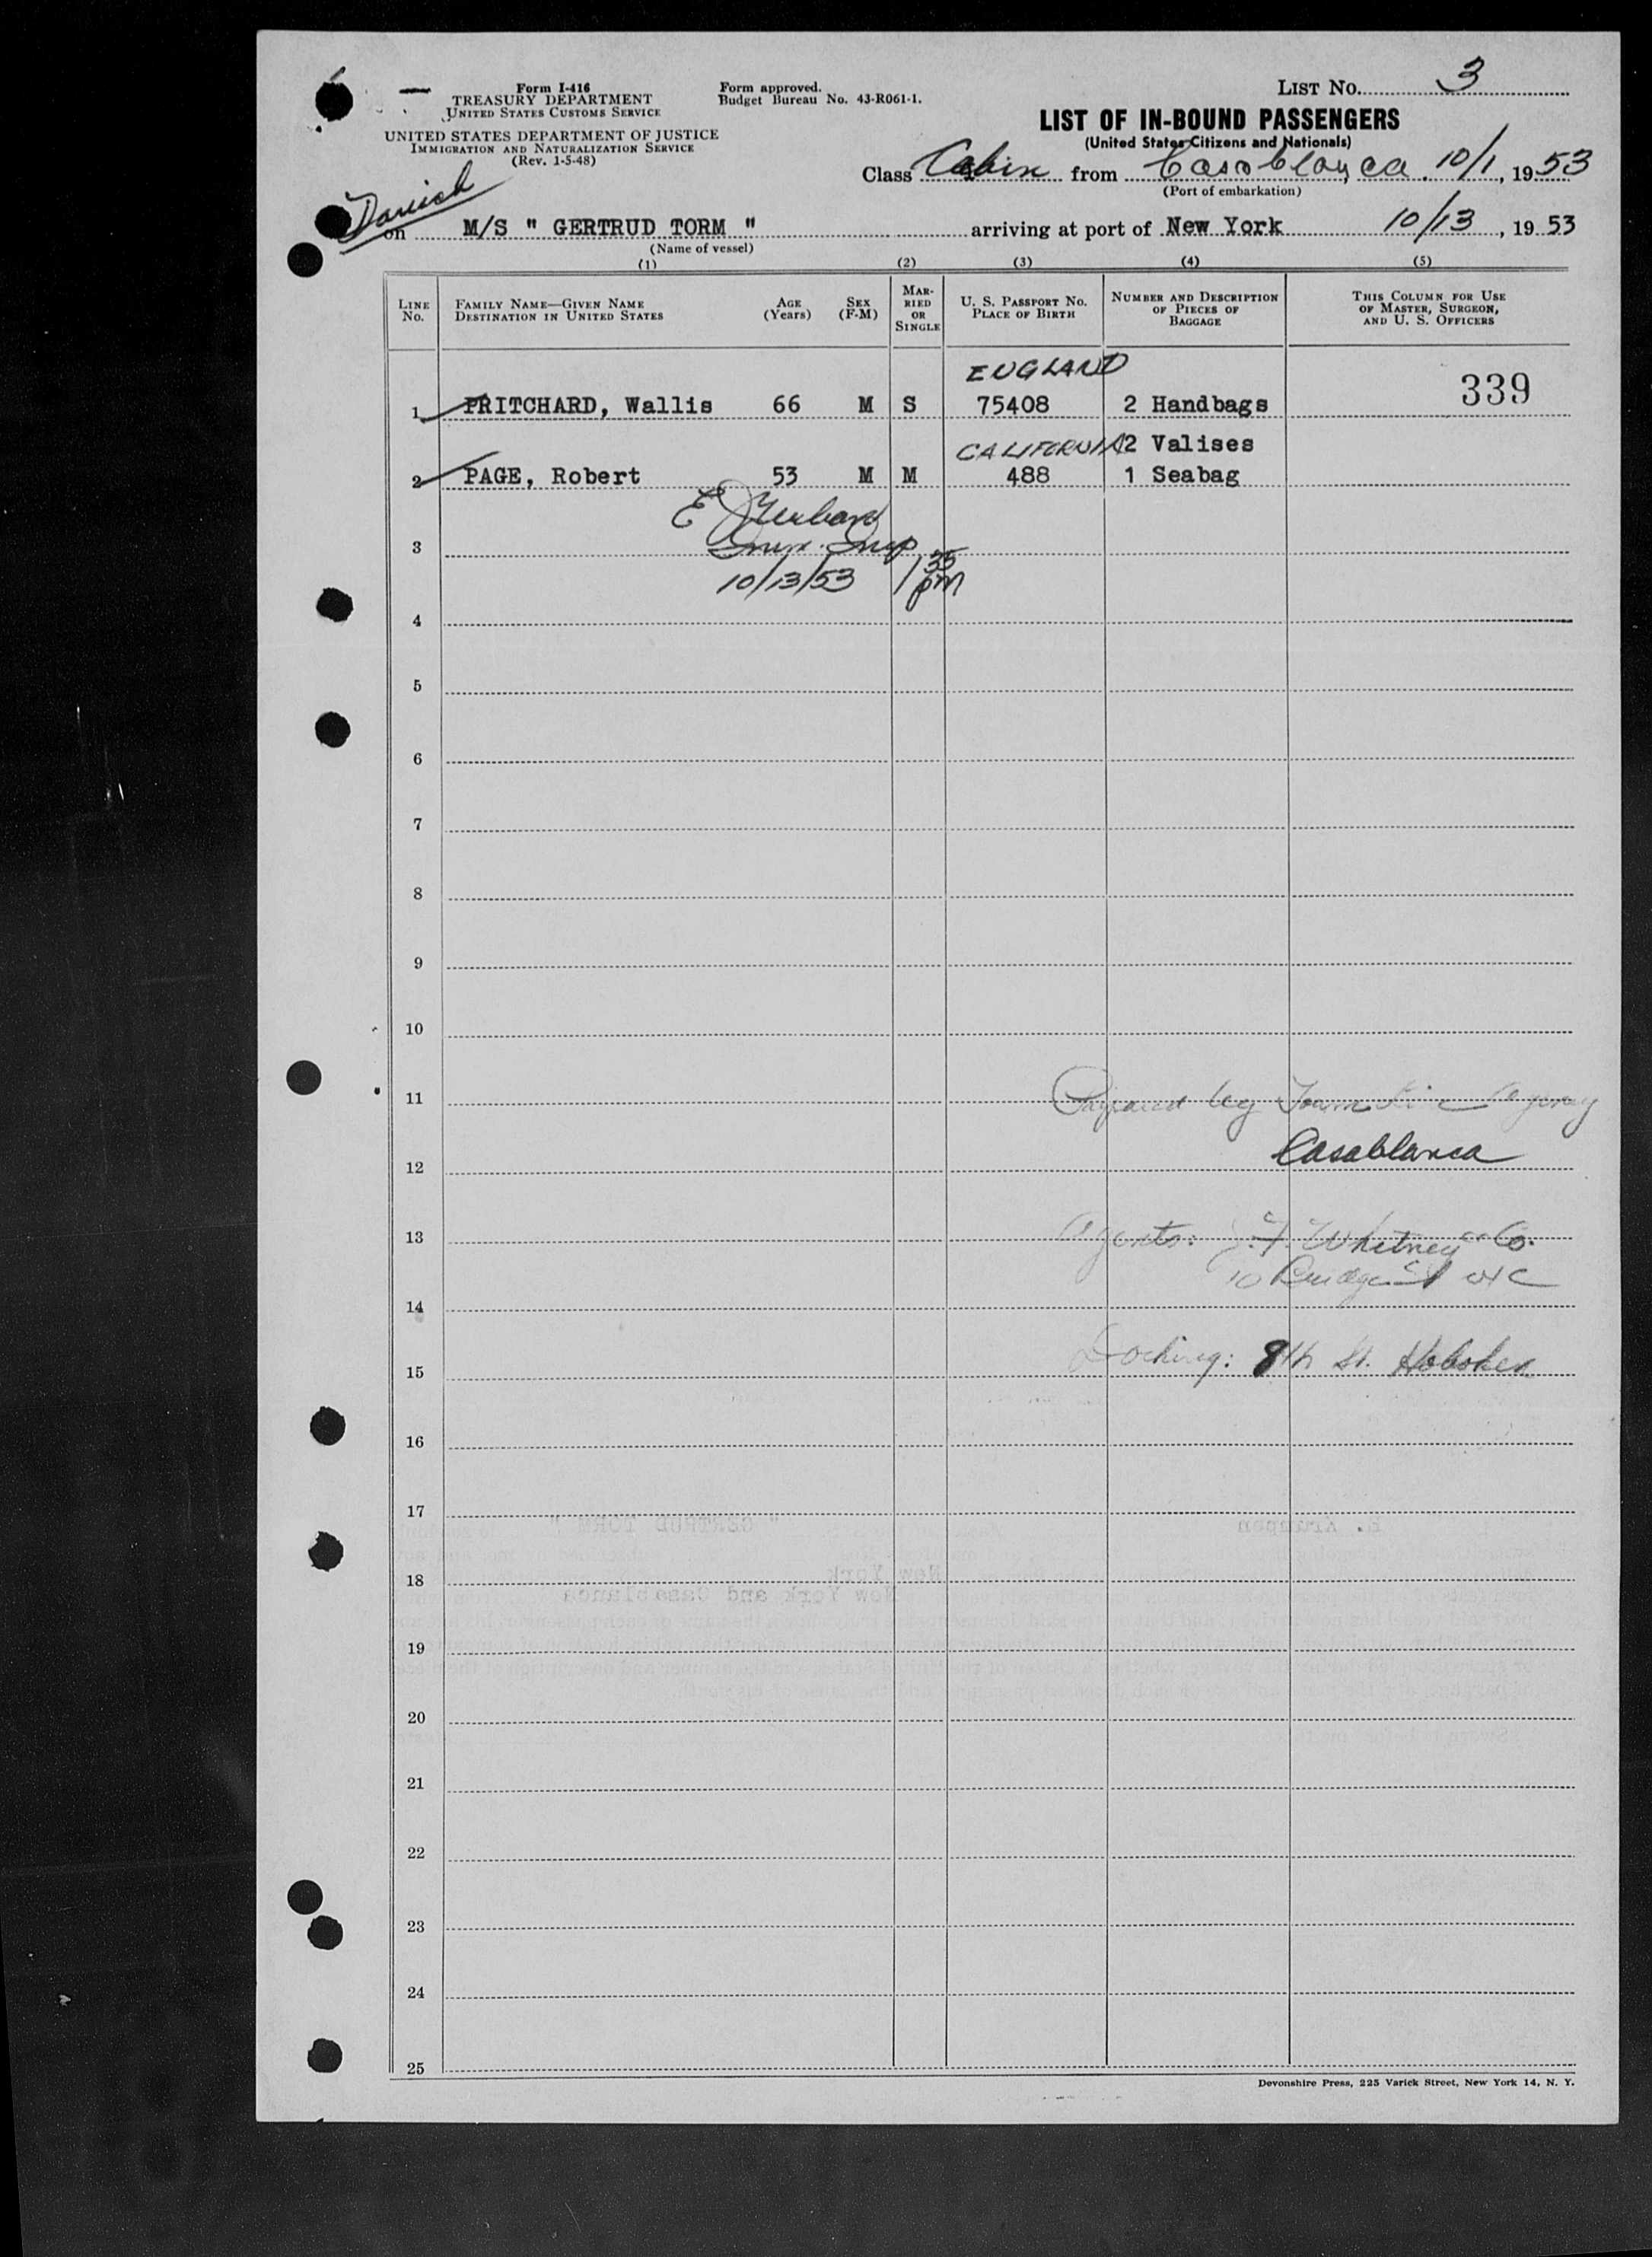 Form I-416
TREASURY DEPARTMENT
UNITED STATES CUSTOMS SERVICE
UNITED STATES DEPARTMENT OF JUSTICE
IMMIGRATION AND NATURALIZATION SERVICE
(Rev. 1-5-48)
Form approved.
Budget Bureau No. 43-R061-1.
LIST NO. 3
LIST OF IN-BOUND PASSENGERS
(United States Citizens and Nationals)
Class Cabin from Casablanca 10/1, 1953
(Port of embarkation)
Danish
on M/S " GERTRUD TORM " arriving at port of New York 10/13, 1953
(Name of vessel)
(1) (2) (3) (4) (5)
LINE NO.
FAMILY NAME—GIVEN NAME
DESTINATION IN UNITED STATES
AGE (Years)
SEX (F-M)
MARRIED OR SINGLE
U. S. PASSPORT NO.
PLACE OF BIRTH
NUMBER AND DESCRIPTION OF PIECES OF BAGGAGE
THIS COLUMN FOR USE OF MASTER, SURGEON, AND U. S. OFFICERS
ENGLAND
1 PRITCHARD, Wallis 66 M S 75408 2 Handbags 339
CALIFORNIA 2 Valises
2 PAGE, Robert 53 M M 488 1 Seabag
Imm. Insp
3
10/13/53 1 35 pm
4
5
6
7
8
9
10
11 Prepared by Torm Line Agency
Casablanca
12
13 Agents: J.F. Whitney & Co.
10 Bridge St NYC
14
15 Docking: 8th St. Hoboken
16
17
" GERTRUD TORM "
18
New York
New York and Casablanca
19
20
21
22
23
24
25
Devonshire Press, 225 Varick Street, New York 14, N. Y.